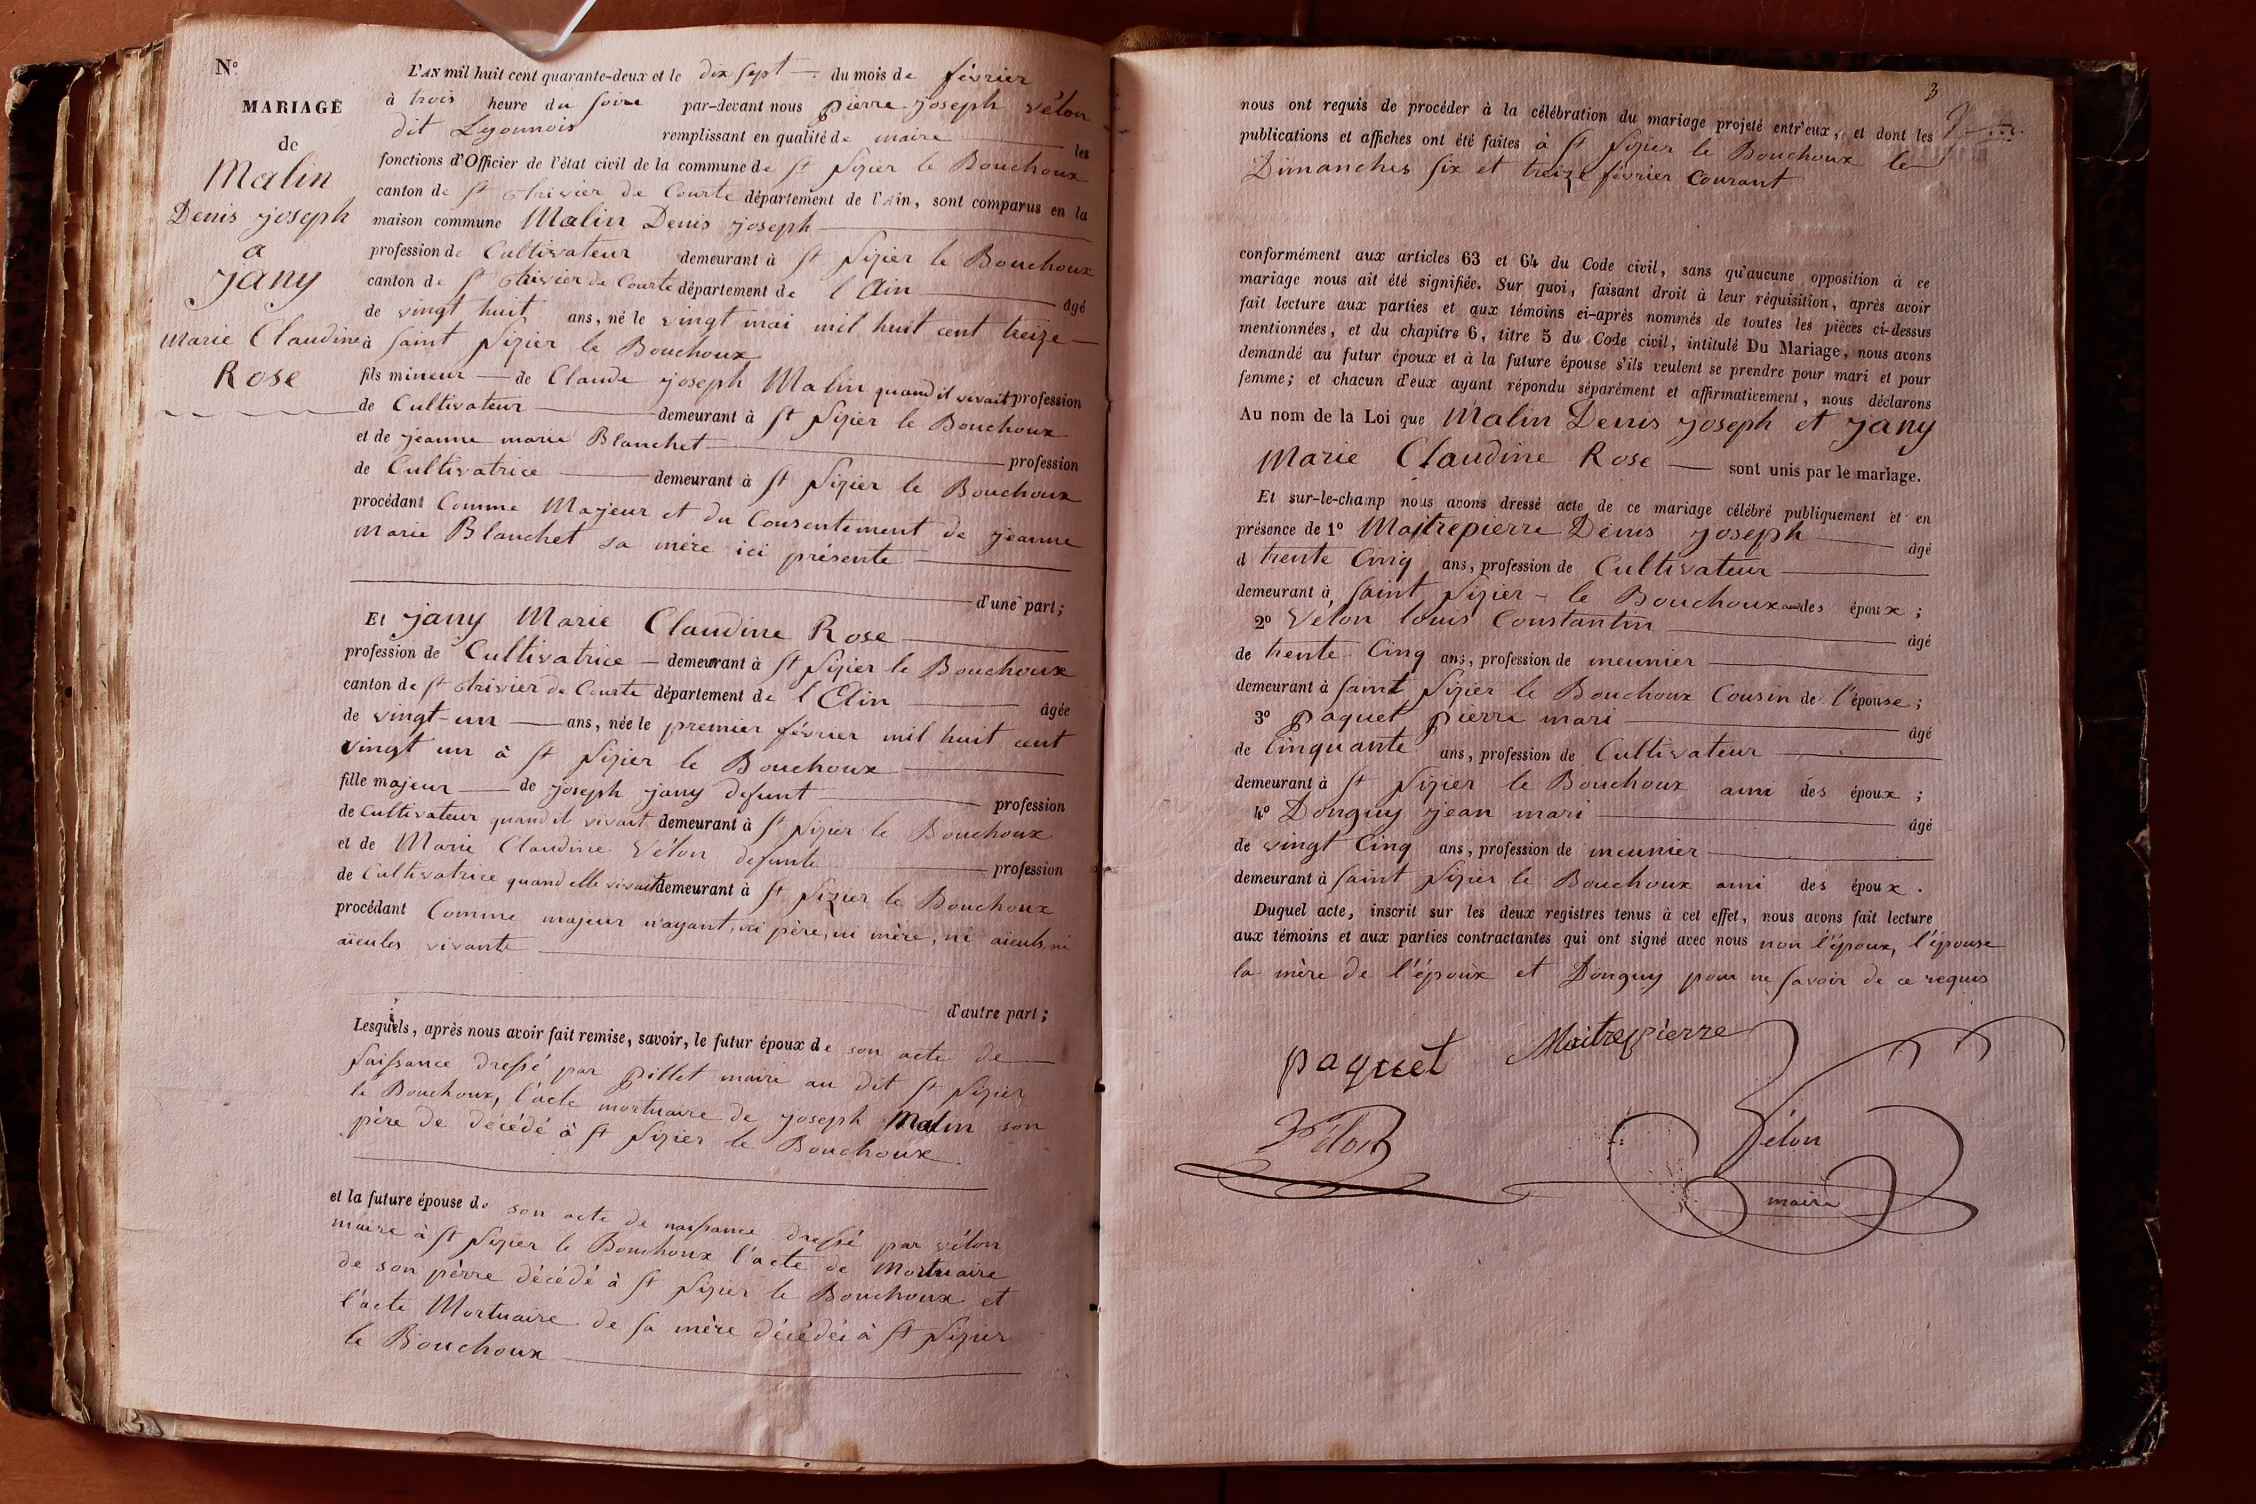 N°
MARIAGE
de
Malin
Denis joseph
a
jany
Marie Claudine
Rose
L'AN mil huit cent quarante-deux et le dix sept du mois de février
à trois heure du soire par-devant nous pierre joseph vélon
dit Lyonnois remplissant en qualité de maire les
fonctions d'Officier de l'état civil de la commune de st Nizier le Bouchoux
canton de st thivier de Courte département de l'Ain, sont comparus en la
maison commune Malin Denis joseph
profession de Cultivateur demeurant à st Nizier le Bouchoux
canton de st thivier de Courte département de l'Ain âgé
de vingt huit ans, né le vingt mai mil huit cent treize
à saint Nizier le Bouchoux
fils mineur de Claude joseph Malin quand il vivait profession
de Cultivateur demeurant à st Nizier le Bouchoux
et de jeanne marie Blanchet profession
de Cultivatrice demeurant à st Nizier le Bouchoux
procédant Comme Majeur et du Consentement de jeanne
Marie Blanchet sa mère ici présente
d'une part;
Et jany Marie Claudine Rose
profession de Cultivatrice demeurant à st Nizier le Bouchoux
canton de st thivier de Courte département de l'Ain âgée
de vingt-un ans, née le premier février mil huit cent
vingt un à st Nizier le Bouchoux
fille majeur de joseph jany defunt profession
de Cultivateur quand il vivait demeurant à st Nizier le Bouchoux
et de Marie Claudine Vélon defunte profession
de Cultivatrice quand elle vivait demeurant à st Nizier le Bouchoux
procédant Comme majeur n'ayant, ni père, ni mère, ni aieuls, ni
aïeules vivante
d'autre part;
Lesquels, après nous avoir fait remise, savoir, le futur époux de son acte de
Naissance dressé par pillet maire au dit st Nizier
le Bouchoux, l'acte mortuaire de joseph Malin son
père de décédé à st Nizier le Bouchoux
et la future épouse de son acte de naissance dressé par vélon
maire à st Nizier le Bouchoux l'acte de Mortuaire
de son pèrre décédé à st Nizier le Bouchoux et
l'acte Mortuaire de sa mère décédée à st Nizier
le Bouchoux
3
nous ont requis de procéder à la célébration du mariage projeté entr'eux, et dont les
publications et affiches ont été faites à st Nizier le Bouchoux le
Dimanches six et treize février Courant
conformément aux articles 63 et 64 du Code civil, sans qu'aucune opposition à ce
mariage nous ait été signifiée. Sur quoi, faisant droit à leur réquisition, après avoir
fait lecture aux parties et aux témoins ci-après nommés de toutes les pièces ci-dessus
mentionnées, et du chapitre 6, titre 5 du Code civil, intitulé Du Mariage, nous avons
demandé au futur époux et à la future épouse s'ils veulent se prendre pour mari et pour
femme; et chacun d'eux ayant répondu séparément et affirmativement, nous déclarons
Au nom de la Loi que Malin Denis joseph et jany
Marie Claudine Rose sont unis par le mariage.
Et sur-le-champ nous avons dressé acte de ce mariage célébré publiquement et en
présence de 1° Maitrepierre Denis joseph âgé
d trente Cinq ans, profession de Cultivateur
demeurant à saint Nizier le Bouchoux ami des époux;
2° Vélon louis Constantin âgé
de trente Cinq ans, profession de meunier
demeurant à saint Nizier le Bouchoux Cousin de l'épouse;
3° paquet pierre mari âgé
de Cinquante ans, profession de Cultivateur
demeurant à st Nizier le Bouchoux ami des époux;
4° Donguy jean mari âgé
de vingt Cinq ans, profession de meunier
demeurant à saint Nizier le Bouchoux ami des époux.
Duquel acte, inscrit sur les deux registres tenus à cet effet, nous avons fait lecture
aux témoins et aux parties contractantes qui ont signé avec nous non l'époux, l'épouse
la mère de l'époux et Donguy pour ne savoir de ce requis
paquet Maitrepierre
Vélon Vélon
maire